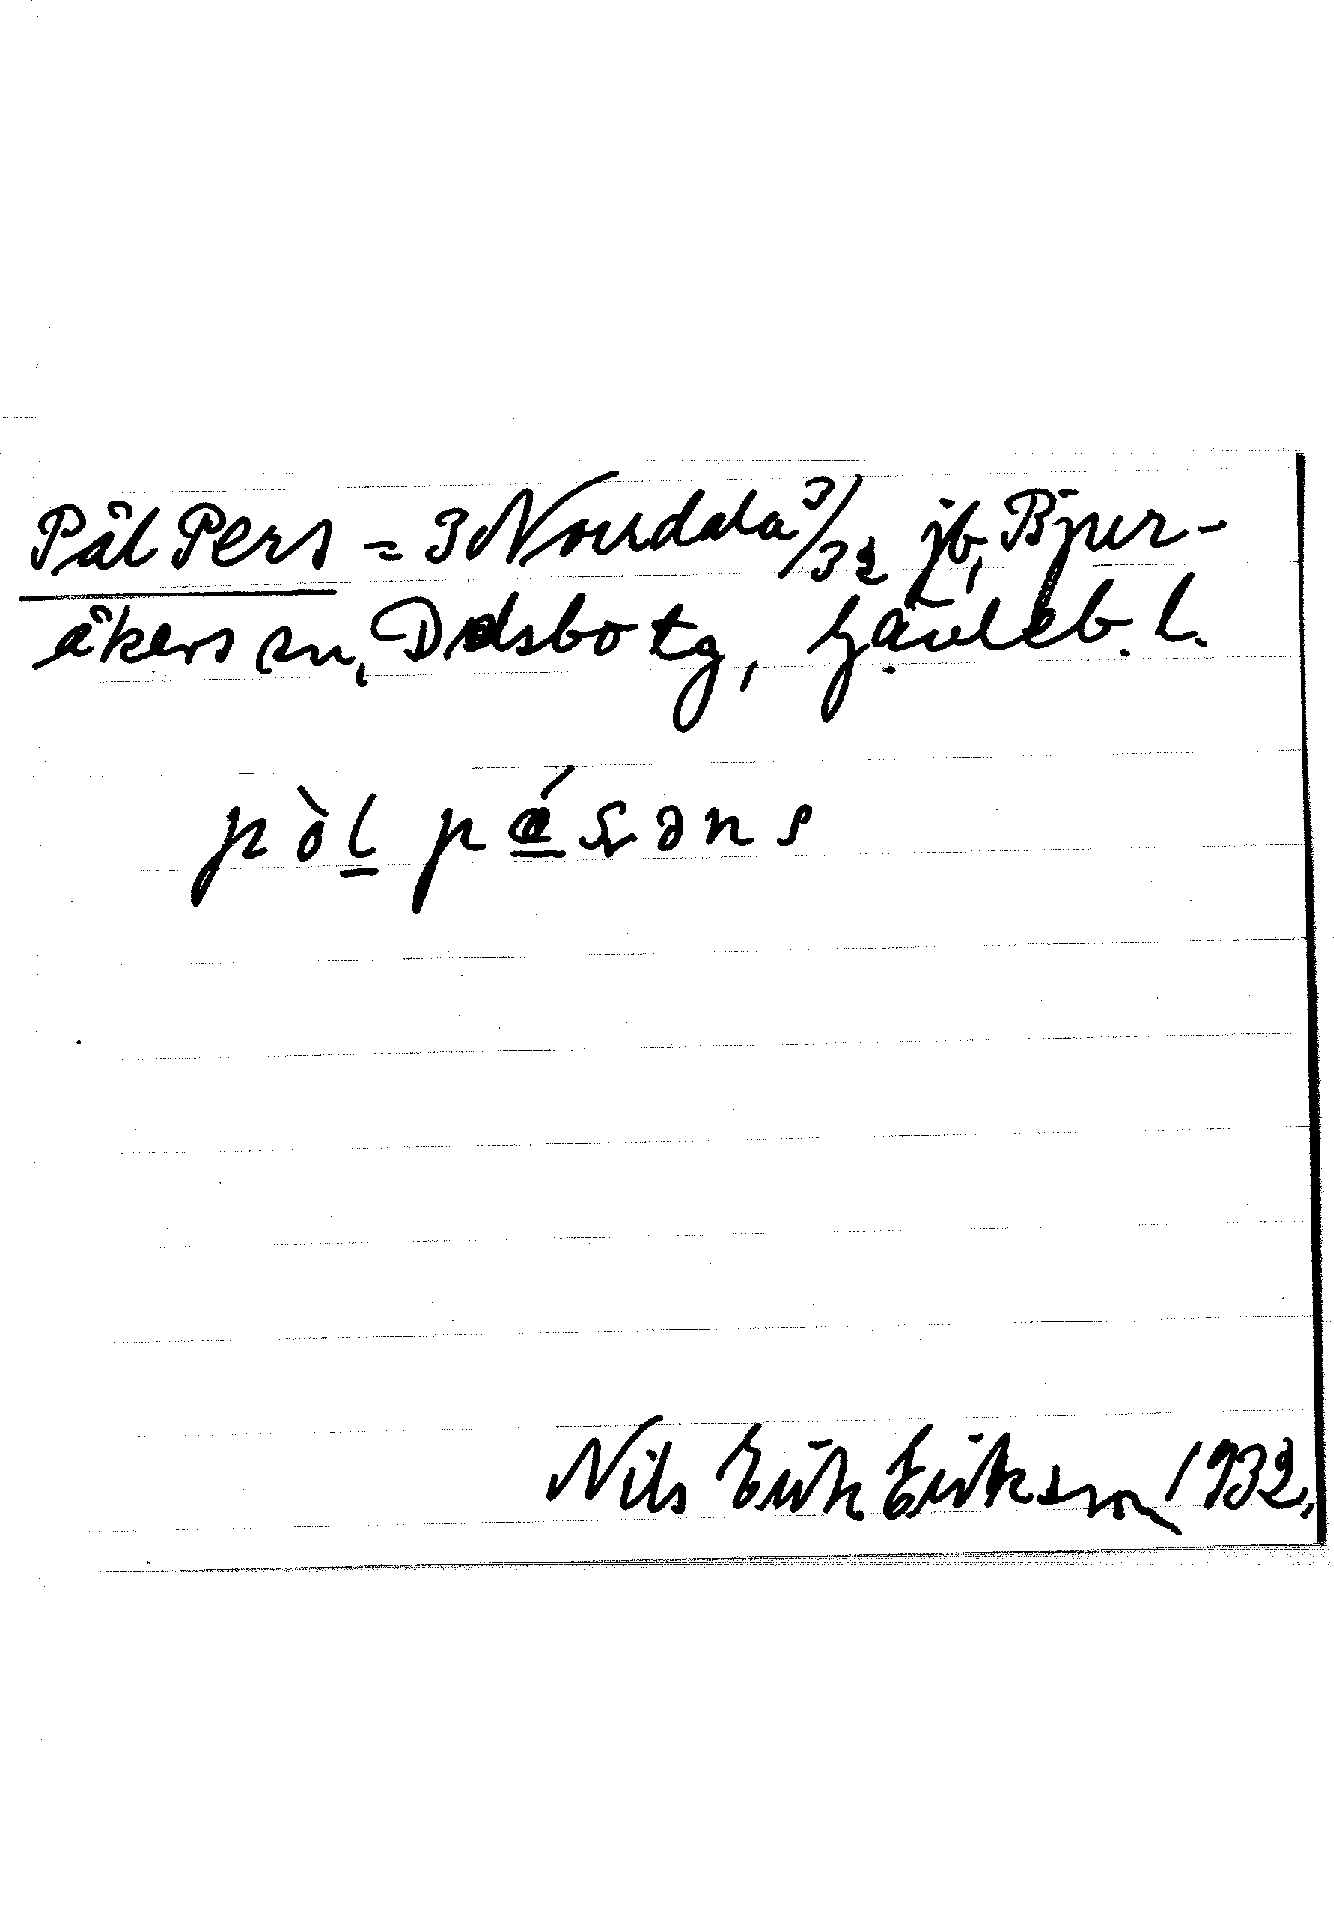 Pål Pers = 3 Nordala 3/32 jb, Bjur-
åkers sn, Delsbo tg, Gävleb. l.
pòl pǽsəns
Nils Erik Erikson 1932.